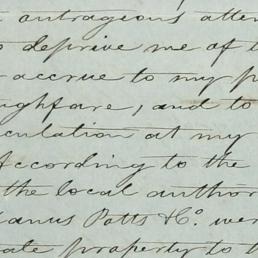 outrageous atte
to deprive me of t
accrue to my p
ughfare, and to
culation at my
According to the
the local author
anus Potts & Co. were
ate property to t